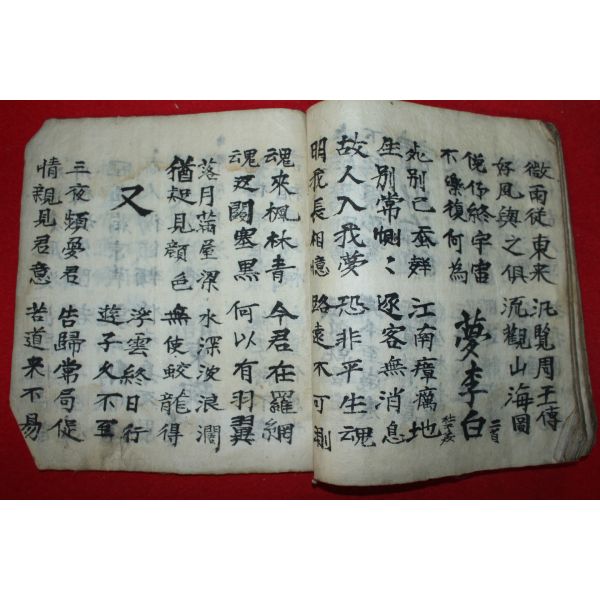 微雨從東來 汎覽周王傳
好風與之俱 流觀山海圖
俛仰終宇宙
不樂復何為
夢李白 二首
死別已吞聲 江南瘴癘地
生別常惻〻 逐客無消息
故人入我夢 恐非平生魂
明我長相憶 路遠不可測
魂來楓林青 今君在羅網
魂返關塞黑 何以有羽翼
落月滿屋梁 水深波浪濶
猶起見顔色 無使蛟龍得
又
浮雲終日行
遊子久不至
三夜頻夢君 告歸常局促
情親見君意 苦道來不易